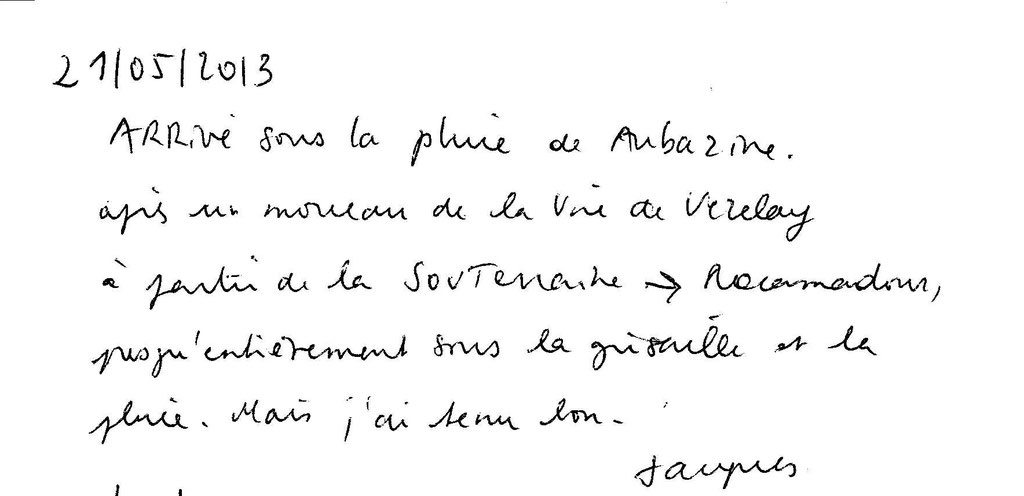 21/05/2013
ARRivé sous la pluie de Aubazine.
après un morceau de la Voie de Vezelay
à partir de la SouTerraine → Rocamadour,
presqu'entièrement sous la grisaille et la
pluie. Mais j'ai tenu bon.
Jacques